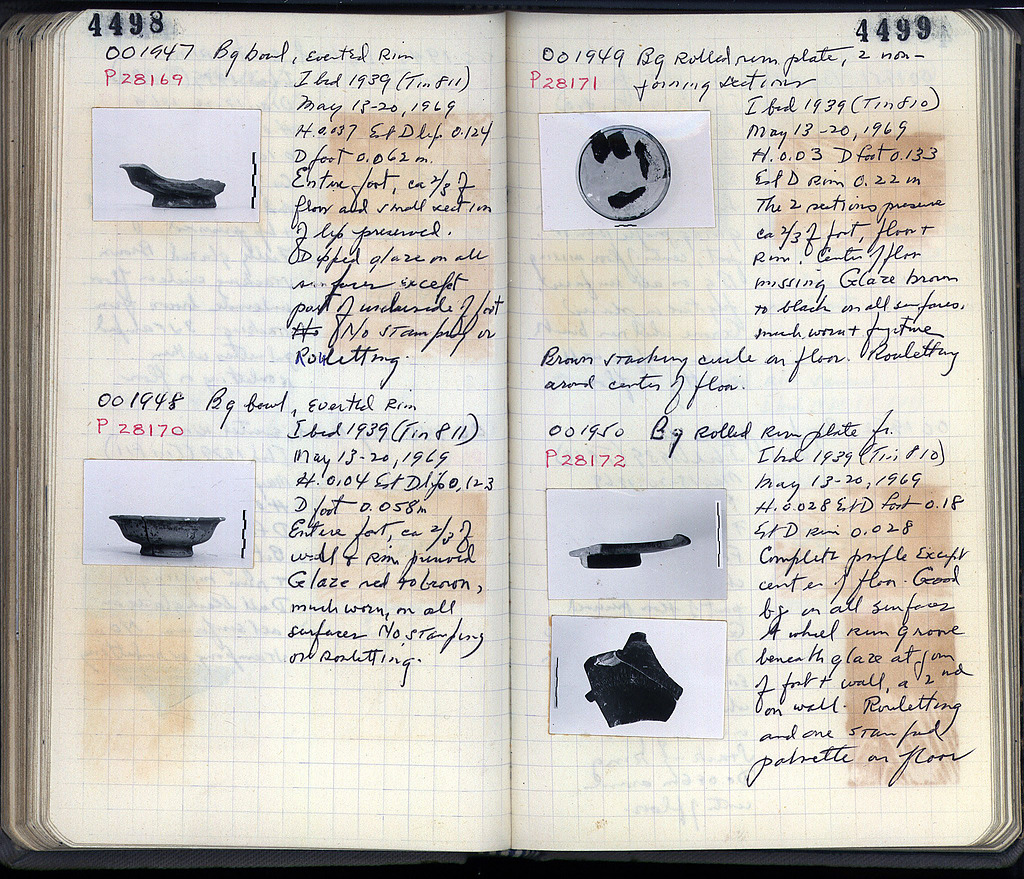 4498
OO 1947 Bg bowl, everted Rim
P 28169
I bed 1939 (Tin 811)
May 13-20, 1969
H. 0.037 Est D lip 0.124
D foot 0.062 m.
Entire foot, ca 2/3 of
floor and small section
of lip preserved.
Dipped glaze on all
surfaces except
part of underside of foot
No stamping or
Rouletting.
OO 1948 Bg bowl, everted Rim
P 28170
I bed 1939 (Tin 811)
May 13-20, 1969
H. 0.04 Est D lip 0,123
D foot 0.058m
Entire foot, ca 2/3 of
wall & Rim preserved
Glaze red to brown,
much worn, on all
surfaces No stamping
or Rouletting.
4499
OO 1949 Bg Rolled rim plate, 2 non-
P 28171 joining sections
I bed 1939 (Tin 810)
May 13-20, 1969
H. 0.03 D foot 0.133
Est D Rim 0.22 m
The 2 sections preserve
ca 2/3 of foot, floor +
Rim. Center of floor
missing Glaze brown
to black on all surfaces,
much worn + fugitive
Brown stacking circle on floor. Rouletting
around center of floor.
OO 1950 Bg Rolled Rim plate fr.
P 28172
I bed 1939 (Tin 810)
May 13-20, 1969
H. 0.028 Est D foot 0.18
Est D Rim 0.028
Complete profile Except
center of floor. Good
bg on all surfaces
A wheel Run groove
beneath glaze at join
of foot + wall, a 2nd
on wall. Rouletting
and one stamped
palmette on floor